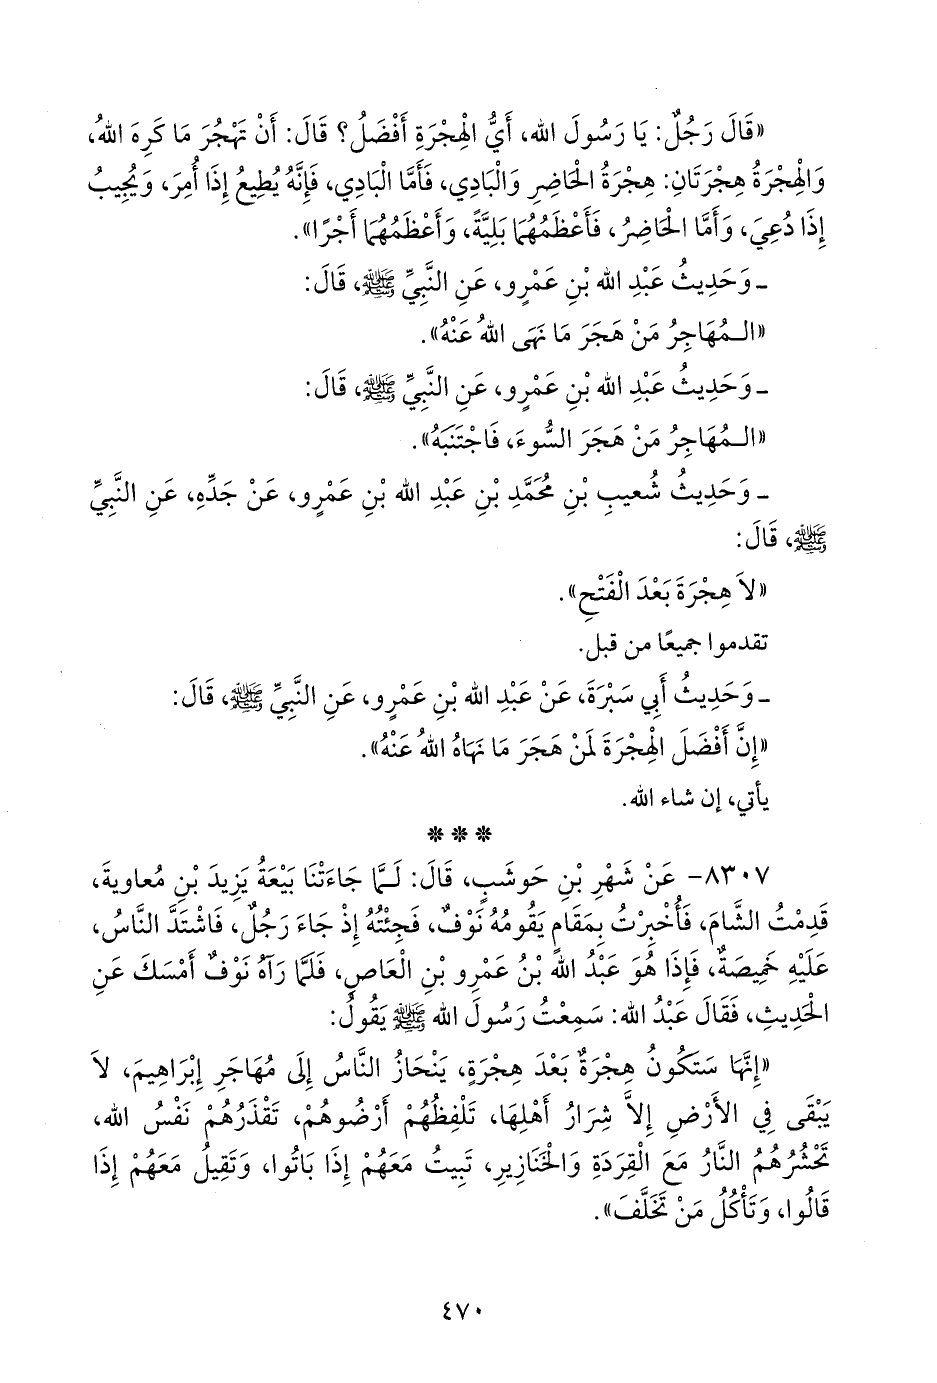 «قَالَ رَجُلٌ: يَا رَسُولَ الله، أَيُّ الْهِجْرَةِ أَفْضَلُ؟ قَالَ: أَنْ تَهْجُرَ مَا كَرِهَ اللهُ،
وَالْهِجْرَةُ هِجْرَتَانِ: هِجْرَةُ الْحَاضِرِ وَالْبَادِي، فَأَمَّا الْبَادِي، فَإِنَّهُ يُطِيعُ إِذَا أُمِرَ، وَيُجِيبُ
إِذَا دُعِيَ، وَأَمَّا الْحَاضِرُ، فَأَعْظَمُهُمَا بَلِيَّةً، وَأَعْظَمُهُمَا أَجْرًا».
ـ وَحَدِيثُ عَبْدِ الله بْنِ عَمْرٍو، عَنِ النَّبِيِّ ﷺ، قَالَ:
«الـمُهَاجِرُ مَنْ هَجَرَ مَا نَهَى اللهُ عَنْهُ».
ـ وَحَدِيثُ عَبْدِ الله بْنِ عَمْرٍو، عَنِ النَّبِيِّ ﷺ، قَالَ:
«الـمُهَاجِرُ مَنْ هَجَرَ السُّوءَ، فَاجْتَنَبَهُ».
ـ وَحَدِيثُ شُعيبِ بْنِ مُحَمَّدِ بْنِ عَبْدِ الله بْنِ عَمْرٍو، عَنْ جَدِّهِ، عَنِ النَّبِيِّ
ﷺ، قَالَ:
«لاَ هِجْرَةَ بَعْدَ الْفَتْحِ».
تقدموا جميعًا من قبل.
ـ وَحَدِيثُ أَبِي سَبْرَةَ، عَنْ عَبْدِ الله بْنِ عَمْرٍو، عَنِ النَّبِيِّ ﷺ، قَالَ:
«إِنَّ أَفْضَلَ الْهِجْرَةَ لَمَنْ هَجَرَ مَا نَهَاهُ اللهُ عَنْهُ».
يأتي، إن شاء الله.
* * *
٨٣٠٧- عَنْ شَهْرِ بْنِ حَوشَبٍ، قَالَ: لَـمَّا جَاءَتْنَا بَيْعَةُ يَزِيدَ بْنِ مُعاويةَ،
قَدِمْتُ الشَّامَ، فَأُخْبِرْتُ بِمَقَامٍ يَقُومُهُ نَوْفٌ، فَجِئْتُهُ إِذْ جَاءَ رَجُلٌ، فَاشْتَدَّ النَّاسُ،
عَلَيْهِ خَمِيصَةٌ، فَإِذَا هُوَ عَبْدُ الله بْنُ عَمْرِو بْنِ الْعَاصِ، فَلَمَّا رَآهُ نَوْفٌ أَمْسَكَ عَنِ
الْحَدِيثِ، فَقَالَ عَبْدُ الله: سَمِعْتُ رَسُولَ الله ﷺ يَقُولُ:
«إِنَّهَا سَتَكُونُ هِجْرَةٌ بَعْدَ هِجْرَةٍ، يَنْحَازُ النَّاسُ إِلَى مُهَاجَرِ إِبْرَاهِيمَ، لاَ
يَبْقَى فِي الأَرْضِ إِلاَّ شِرَارُ أَهْلِهَا، تَلْفِظُهُمْ أَرْضُوهُمْ، تَقْذَرُهُمْ نَفْسُ الله،
تَحْشُرُهُمُ النَّارُ مَعَ الْقِرَدَةِ وَالْخَنَازِيرِ، تَبِيتُ مَعَهُمْ إِذَا بَاتُوا، وَتَقِيلُ مَعَهُمْ إِذَا
قَالُوا، وَتَأْكُلُ مَنْ تَخَلَّفَ».
٤٧٠